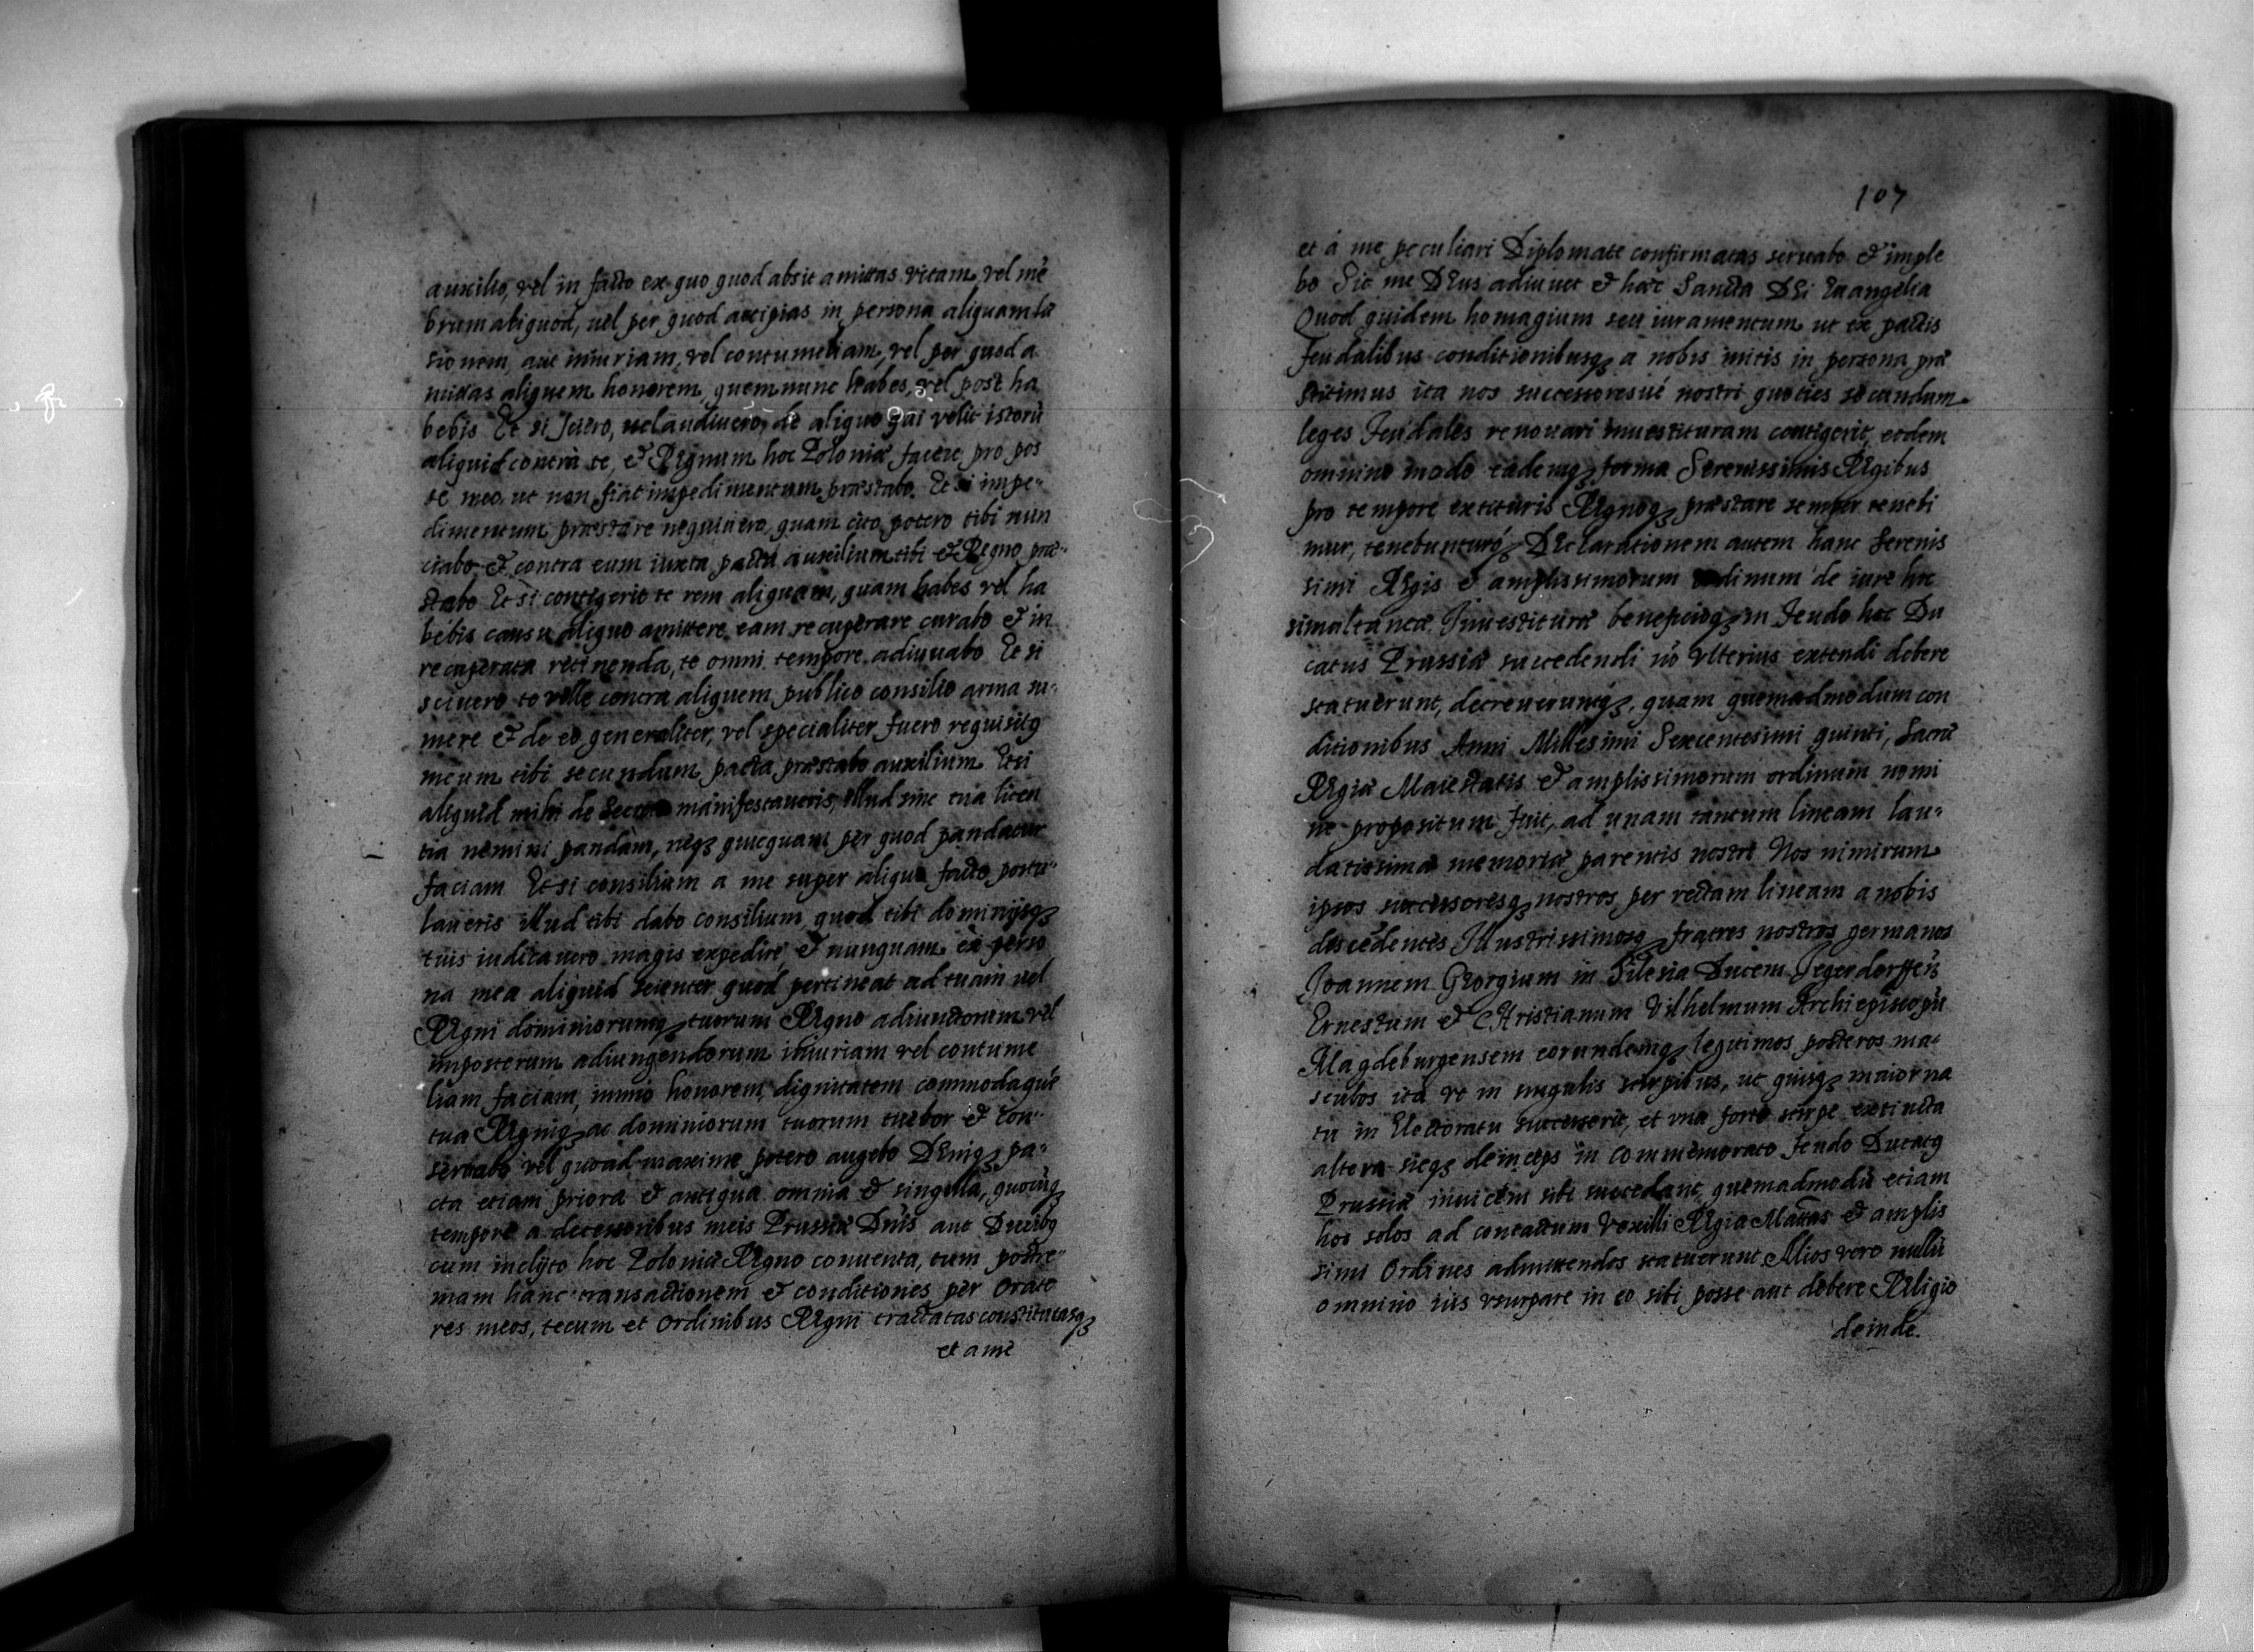 auxilio, vel in facto ex quo quod absit amittas vitam, vel mē
brum aliquod, uel per quod accipias in persona aliquam læ
sionem aut iniuriam, vel contumeliam, vel per quod a
mittas aliquem honorem, quem nunc habes, vel post ha
bebis Et si sciero, uel audiuero, de aliquo qui velit istorū
aliquid contrà te, et Regnum hoc Poloniæ facere pro pos
se meo ut non fiat impedimentum præstabo. Et si impe-
dimentum præstare nequiuero, quam cito potero tibi nun
ciabo et contra eum iuxta pacta auxilium tibi et Regno præ-
stabo Et si contigerit te rem aliquam, quam habes vel ha
bebis casu aliquo amittere eam recuperare curabo et in
recuperata retinenda, te omni tempore adiuuabo Et si
sciuero te velle contra aliquem publico consilio arma su-
mere et de eo generaliter, vel specialiter fuero requisitꝯ
meum tibi secundum pacta præstabo auxilium Et si
aliquid mihi de secreto manifestaueris, illud sine tua licen
tia nemini pandam, neqꝫ quicquam per quod pandatur
faciam Et si consilium a me super aliquo facto postu-
laueris illud tibi dabo consilium quod tibi dominijsqꝫ
tuis iudicauero magis expedire et nunquam ex perso
na mea aliquid scienter quod pertineat ad tuam vel
Regni dominiorumqꝫ tuorum Regno adiunctorum vel
imposterum adiungendorum iniuriam vel contume
liam faciam, immo honorem, dignitatem commodaque
tua Regniqꝫ ac dominiorum tuorum tuebor et con-
seruabo vel quoad maxime potero augebo Deniqꝫ pa-
cta etiam priora et antiqua omnia et singula, quocūqꝫ
tempore a decessoribus meis Prussiæ Dnīs aut Ducibꝯ
cum inclyto hoc Poloniæ Regno conuenta, tum postre-
mam hanc transactionem et conditiones per Orato
res meos, tecum et Ordinibus Regni tractatas constitutasqꝫ
et a me
107
et à me peculiari Diplomate confirmatas seruabo et imple
bo Sic me Deus adiuuet et hæc Sancta Dei Euangelia
Quod quidem homagium seu iuramentum ut ex pactis
feudalibus conditionibusqꝫ a nobis initis in persona præ
stitimus ita nos successoresue nostri quoties secundum
leges feudales renouari inuestituram contigerit, eodem
omnino modo eademqꝫ forma Serenissimis Regibus
pro tempore extituris Regnoqꝫ præstare semper tenebi
mur, tenebunturqꝫ Declarationem autem hanc Serenis
simi Regis et amplissimorum ordinum de iure huc
simultaneæ Inuestituræ beneficioqꝫ in feudo hoc Du
catus Prussiæ succedendi nō vlterius extendi debere
statuerunt, decreueruntqꝫ, quam quemadmodum con
ditionibus Anni Millesimi Sexcentesimi quinti, Sacræ
Regiæ Maiestatis et amplissimorum ordinum nomi
ne propositum fuit, ad unam tantum lineam lau-
datissimæ memoriæ parentis nostri Nos nimirum
ipsos successoresqꝫ nostros per rectam lineam a nobis
descēdentes Illustrissimosqꝫ fratres nostros germanos
Joannem Georgium in Silesia Ducem Jegerdorffen̄
Ernestum et Christianum Vilhelmum Archiepiscopū
Magdeburgensem eorundemqꝫ legitimos posteros ma-
sculos ita vt in singulis stirpibus, ut quisqꝫ maior na
tu in Electoratu successerit, et vna forte stirpe extincta
altera sicqꝫ deinceps in commemorato feudo Ducatꝯ
Prussiæ inuicem sibi succedant, quemadmodū etiam
hos solos ad contactum Vexilli Regia Mattas et amplis
simi Ordines admittendos statuerunt Alios vero nullū
omnino ius vsurpare in eo sibi posse aut debere Religio
deinde.